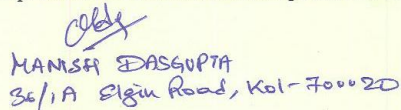 MANISH DASGUPTA
36/1A Elgin Road, Kol-700020